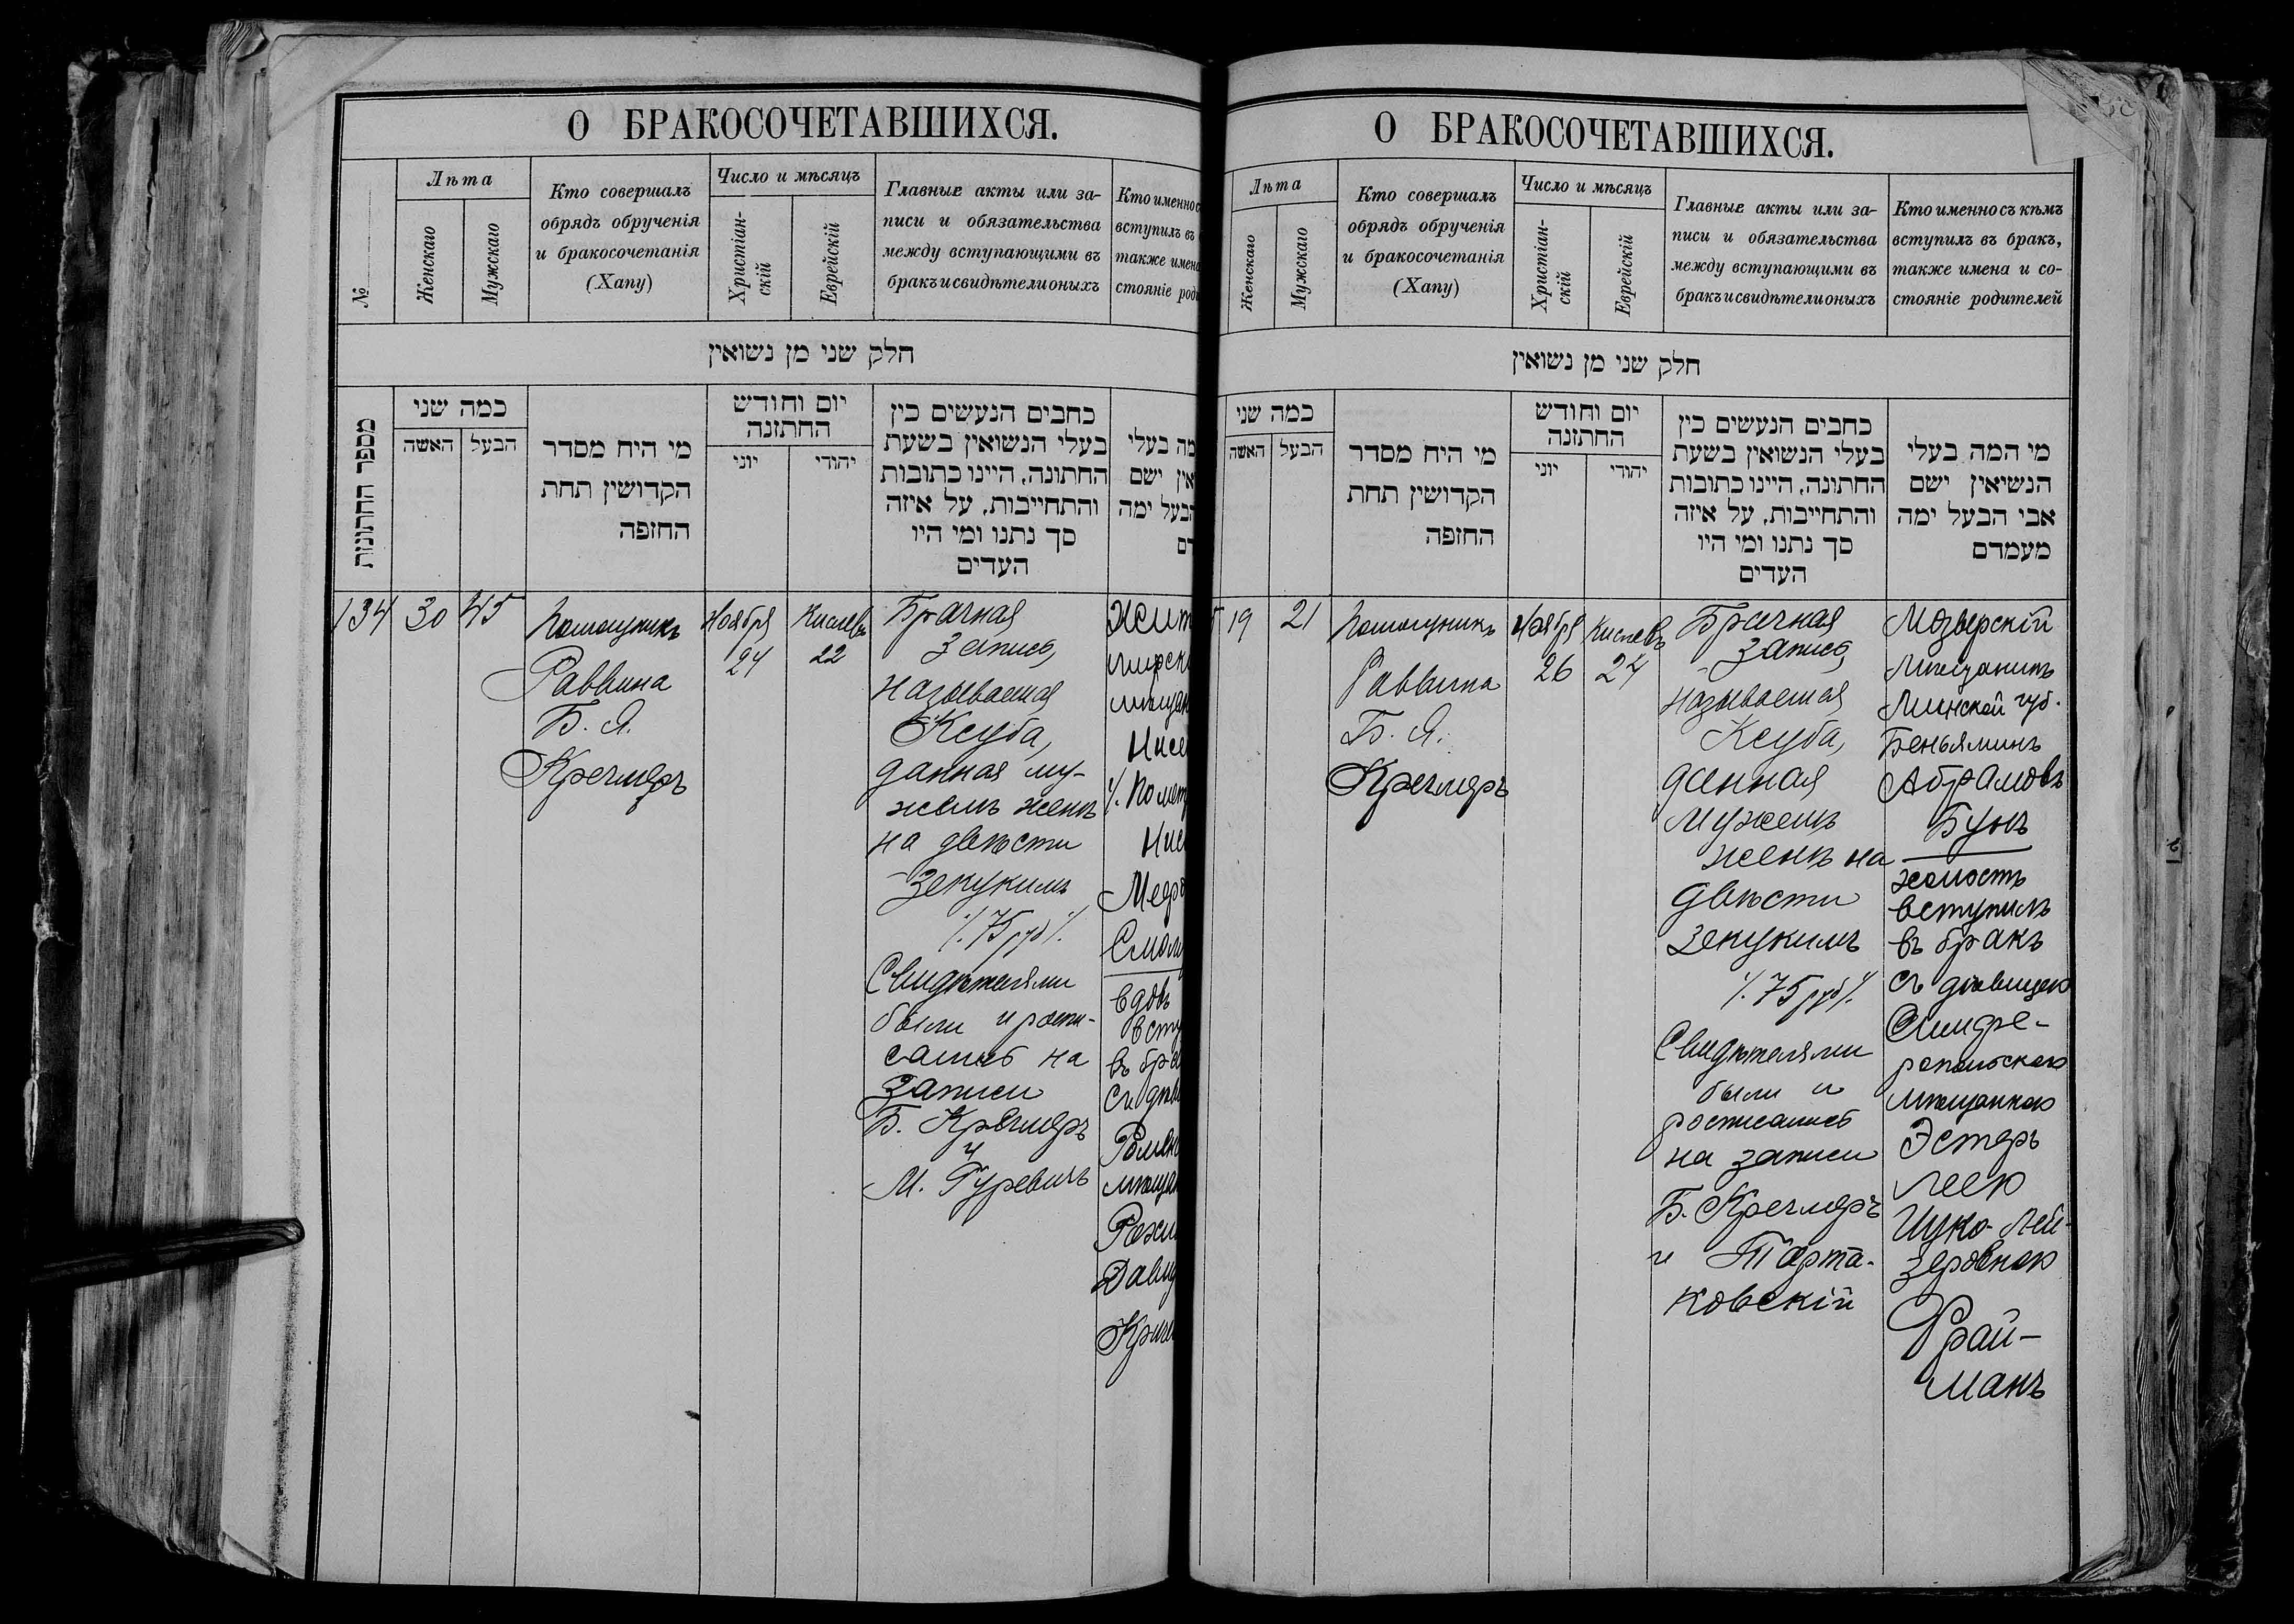 О БРАКОСОЧЕТАВШИХСЯ.
№
Лѣта
Женскаго
Мужскаго
Кто совершалъ
обрядъ обрученія
и бракосочетанія
(Хапу)
Число и мѣсяцъ
Христіан-
скій
Еврейскій
Главные акты или за-
писи и обязательства
между вступающими въ
бракъ и свидѣтели оныхъ
Кто именно с
вступилъ въ
также имена
стояніе роди
חלק שני מן נשואין
מספר החתונות
כמה שני
האשה
הבעל
מי היח מסדר
הקדושין תחת
החזפה
יום וחודש
החתזנה
יוני
יהודי
כחבים הנעשים כין
בעלי הנשואין בשעת
החתונה, היינו כתובות
והתחייבות, על איזה
סך נתנו ומי היו
העדים
מה בעלי
אין ישם
הבעל ימה
דם
134
30
45
Помощникъ
Раввина
Б. Я.
Кречмеръ
Ноября
24
Кислевъ
22
Брачная
запись,
называемая
Ксуба,
данная му-
жемъ женѣ
на двѣсти
зекукимъ
/. 75 руб /.
Свидѣтелями
были и роспи-
сались на
записи
Б. Кречмеръ
и
М. Гуревичъ
Жит
мирск
мѣщан
Нисе
/. Помет
Нис
Медо
Смол
вдов
всту
въ бра
съ дѣв
Роменс
мѣщан
Рохл
Давид
Крич
О БРАКОСОЧЕТАВШИХСЯ.
Лѣта
Женскаго
Мужскаго
Кто совершалъ
обрядъ обрученія
и бракосочетанія
(Хапу)
Число и мѣсяцъ
Христіан-
скій
Еврейскій
Главные акты или за-
писи и обязательства
между вступающими въ
бракъ и свидѣтели оныхъ
Кто именно съ кѣмъ
вступилъ въ бракъ,
также имена и со-
стояніе родителей
חלק שני מן נשואין
כמה שני
האשה
הבעל
מי היח מסדר
הקדושין תחת
החזפה
יום וחודש
החתזנה
יוני
יהודי
כחבים הנעשים כין
בעלי הנשואין בשעת
החתונה, היינו כתובות
והתחייבות, על איזה
סך נתנו ומי היו
העדים
מי המה בעלי
הנשיאין ישם
אבי הבעל ימה
מעמדם
5
19
21
Помощникъ
Раввина
Б. Я.
Кречмеръ
Ноября
26
Кислевъ
24
Брачная
запись,
называемая
Ксуба,
данная
мужемъ
женѣ на
двѣсти
зекукимъ
/. 75 руб /.
Свидѣтелями
были и
росписались
на записи
Б. Кречмеръ
и Тарта-
ковскій
Мозырскій
мѣщанинъ
Минской губ.
Беньяминъ
Абрамовъ
Бунъ
холость
вступилъ
въ бракъ
съ дѣвицею
Симфе-
ропольскою
мѣщанкою
Эстеръ
Леею
Ицко-Лей-
зеровною
Фрай-
манъ